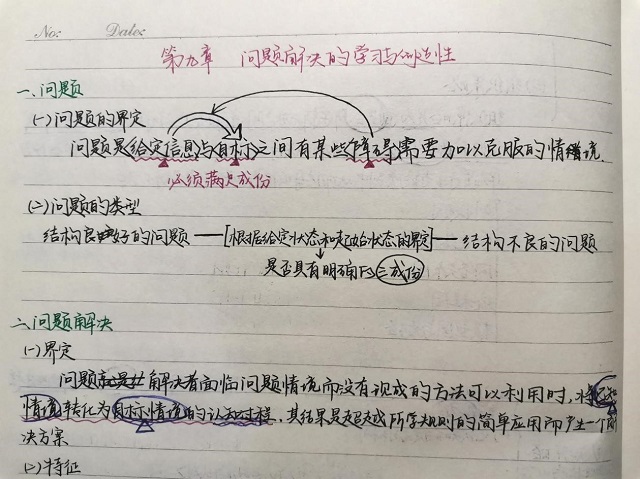 No: Date:
第九章 问题解决的学习与创造性
一、问题
(一)问题的界定
问题是给定信息与目标之间有某些障碍需要加以克服的情境.
必须满足成份
(二)问题的类型
结构良好的问题——[根据给定状态和起始状态的界定]——结构不良的问题
是否具有明确的三成份
二、问题解决
(一)界定
问题解决者面临问题情境而没有现成的方法可以利用时,将已知
情境转化为目标情境的认知过程,其结果是超越所学规则的简单应用而产生一个解
决方案
(二)特征